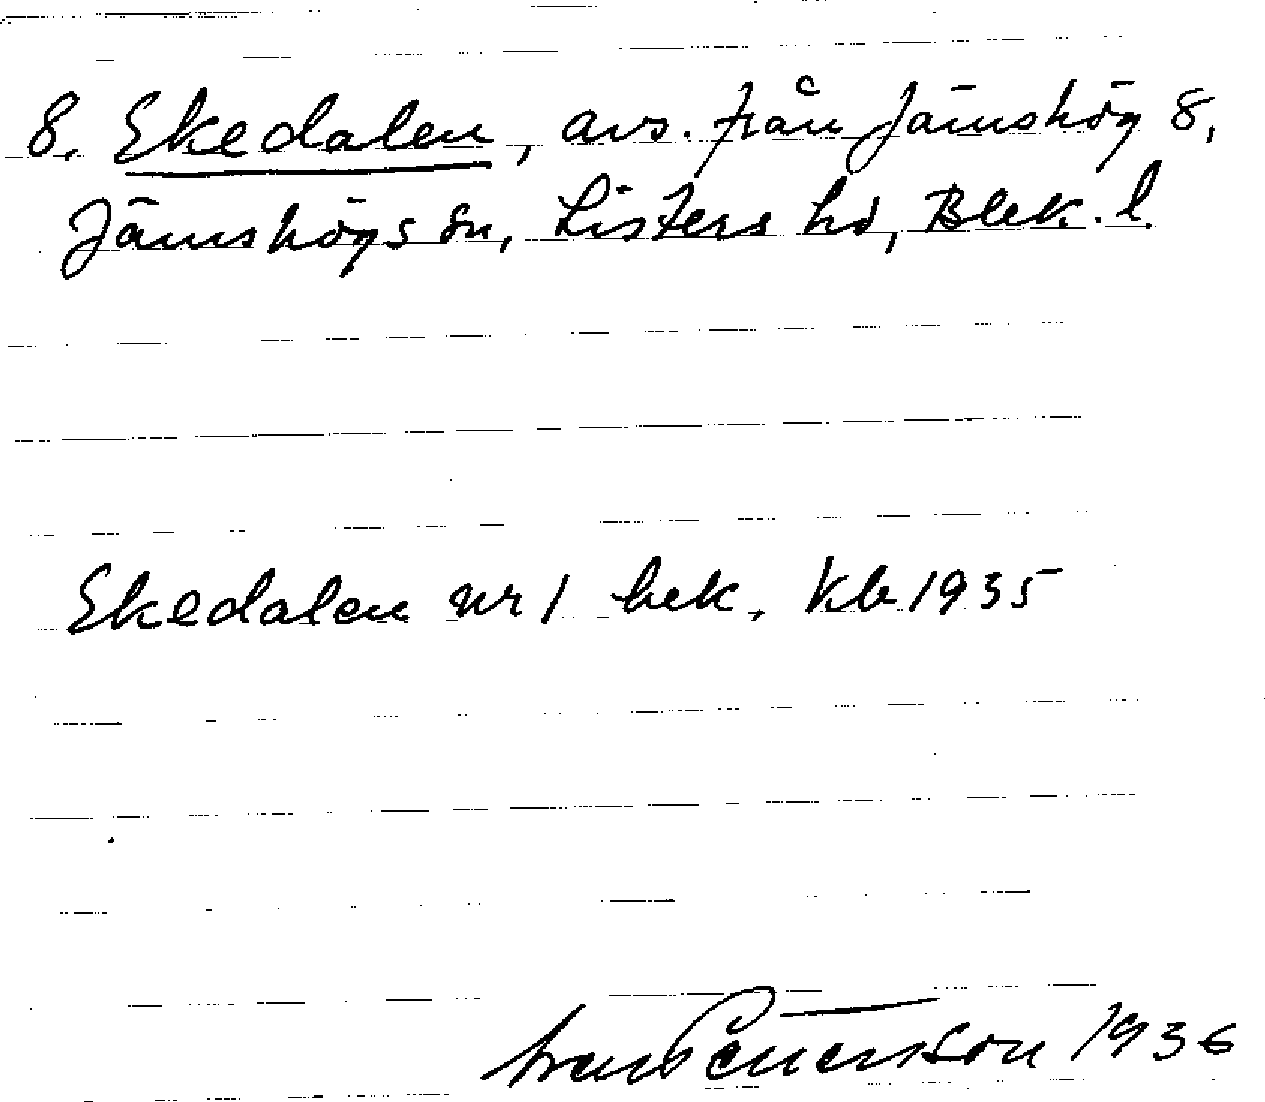 8. Ekedalen, avs. från Jämshög 8,
Jämshögs sn, Listers hd, Blek. l.
Ekedalen nr 1 bek. Kb 1935
Pettersson 1936